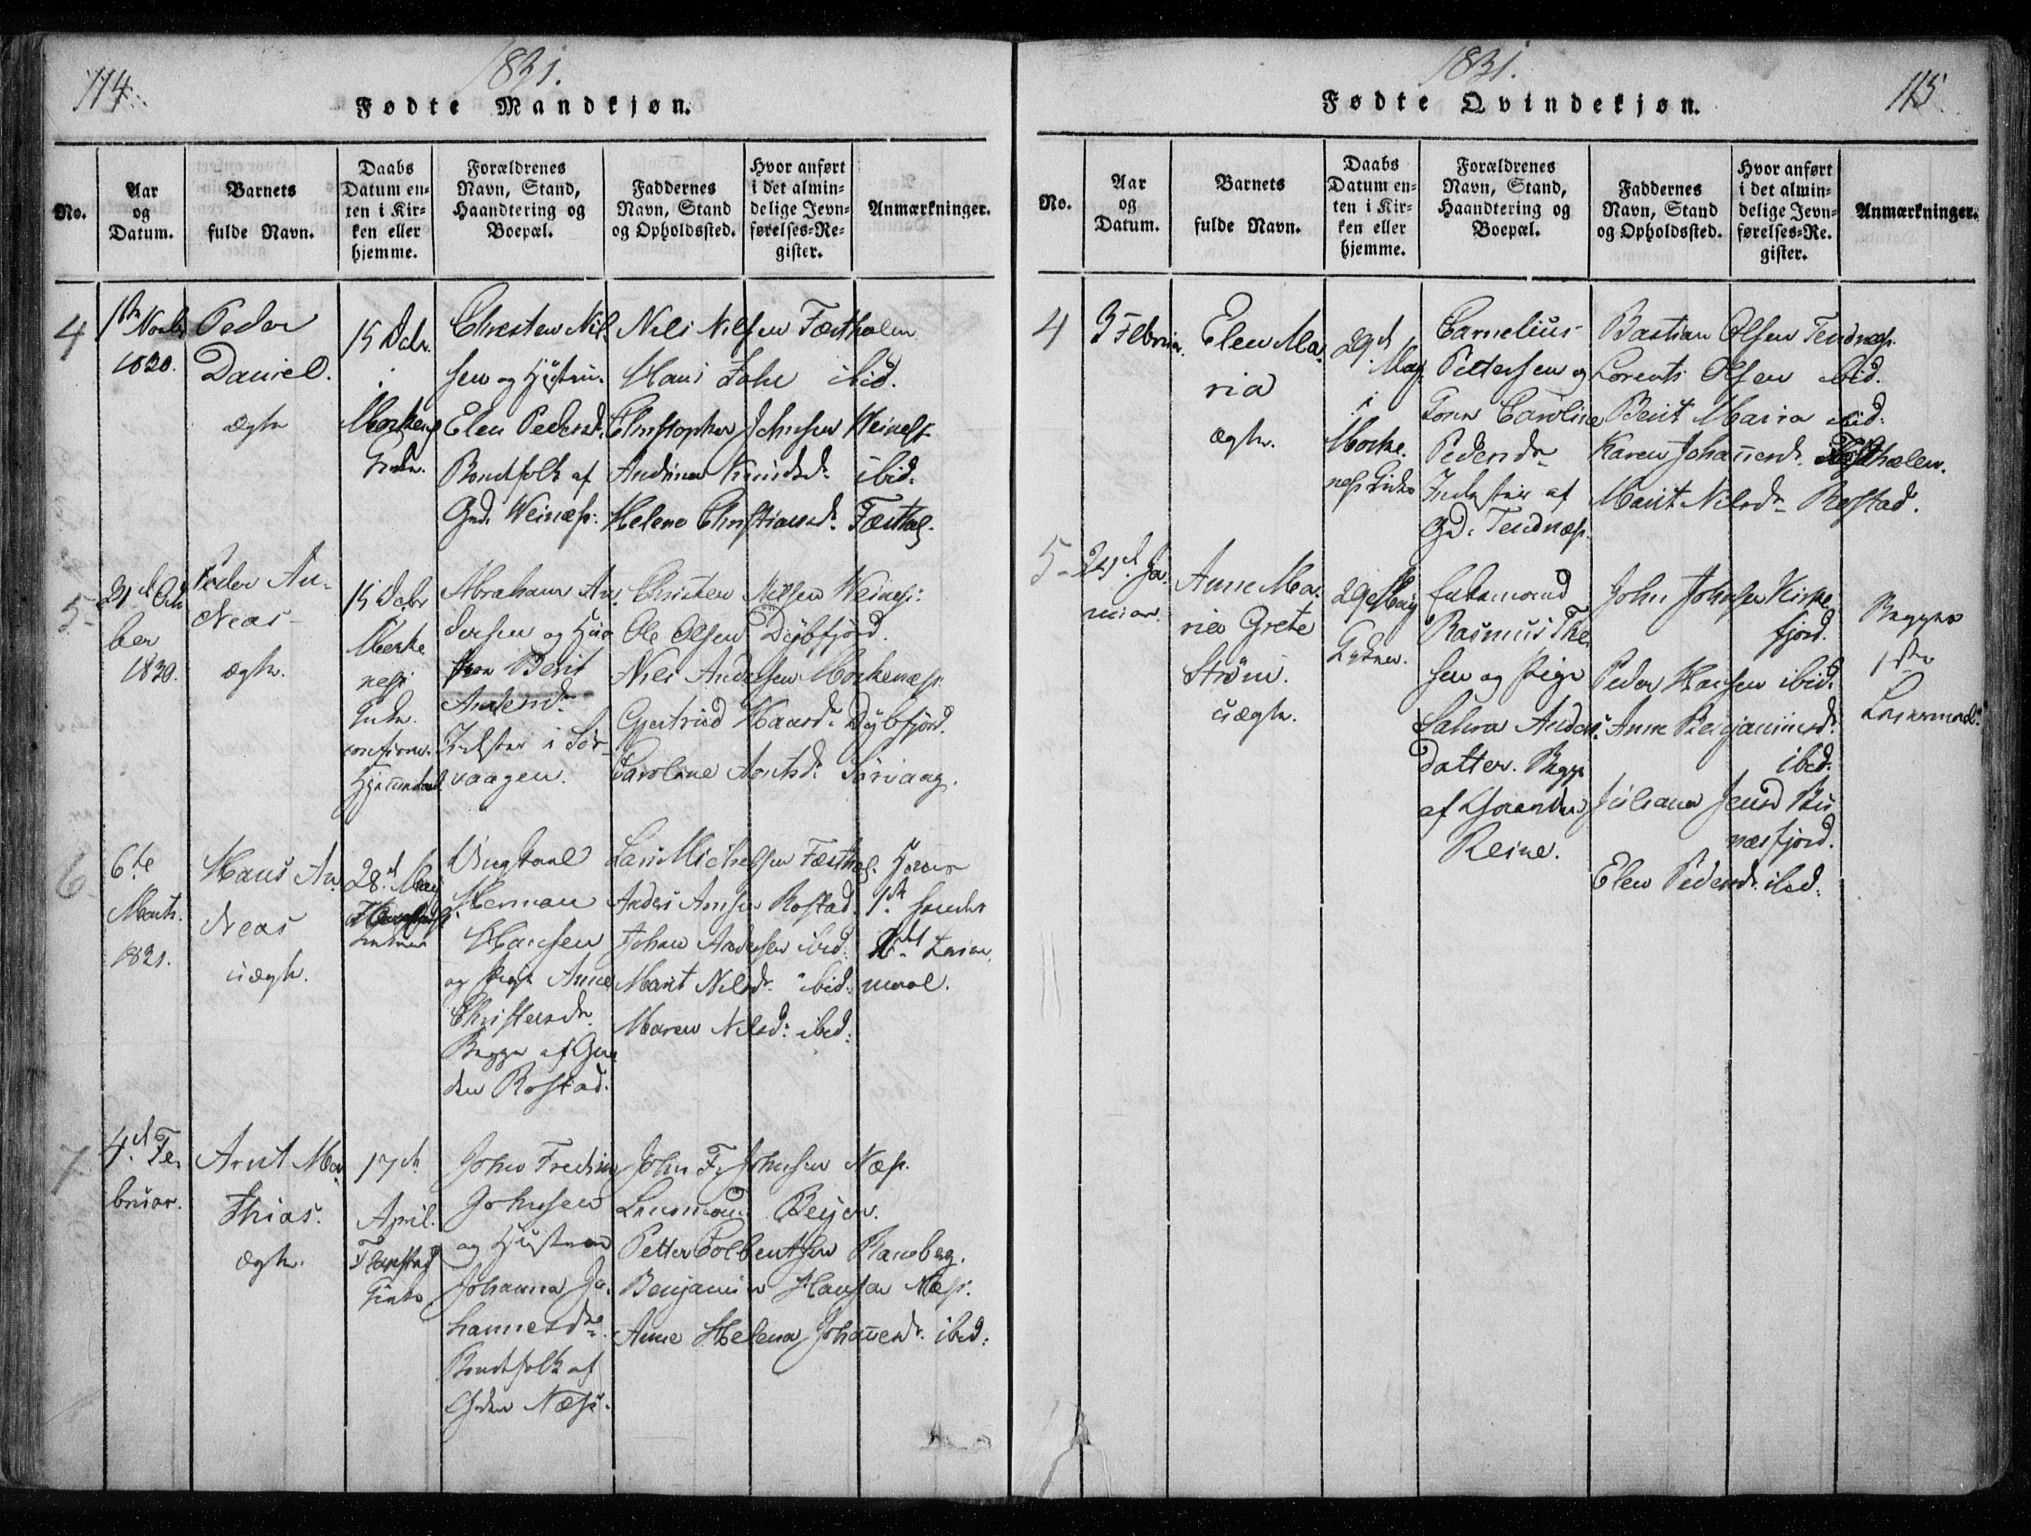 114
1831.
Fødte Mandkjøn.
No.
Aar
og
Datum.
Barnets
fulde Navn.
Daabs
Datum en-
ten i Kir-
ken eller
hjemme.
Forældrenes
Navn, Stand,
Haandtering og
Boepæl.
Faddernes
Navn, Stand
og Opholdssted.
Hvor anført
i det almin-
delige Jevn-
førelses-Re-
gister.
Anmærkninger.
4
1830.
Peder
Daniel.
ægte
15 Decbr.
i
Christen Nil-
sen og Hustru
Elen Pedersd.
Bondefolk af
Grd. Weinæs.
Nils Nilsen Færthalen
Hans Zahl ibid.
Christopher Johnsen Weines
Andrina Knudsd. ibid.
Helene Christiansd. Færthal.
5
21 Octo
ber
1830.
Peder An-
dreas
ægte.
15 Decbr
Morke
næs
Kirke.
Abraham An
dersen og Hus
Berit
Andersd.
Inderster i Sør-
vaagen.
Christen Nilsen Weines.
Ole Olsen Dybfjord.
Nils Andersen Morkenæs.
Gjertrud Hansd. Dybfjord.
Caroline Arntsd. Sørvaag.
6
6te
Marts.
1831.
Hans An
dreas
uægte.
28 May
Ungkarl
Herman
Hansen
og Pige Anne
Christensdr.
Begge af Gaa
den Rostad.
Lars Michelsen Færthal.
Anders Arnsen Rostad.
Johan Andersen ibid.
Marit Nilsdr. ibid.
Maren Nilsd. ibid.
Hans
1ste hendes
2det Leier
maal.
7
4de Fe
bruar.
Arnt Ma
thias.
ægte.
17de
April.
Flakstad
Kirke.
John Fredrik
Johnsen
og Hustrue
Johanna Jo
hannesdr.
Bondefolk af
Grden Næss.
John F. Johnsen Næs.
Lensmand Beyer.
Petter Colbentsen Ramberg.
Benjamin Hansen Næs.
Anne Helena Johannesdr. ibid.
1831.
115
Fødte Qvindekjøn.
No.
Aar
og
Datum.
Barnets
fulde Navn.
Daabs
Datum en-
ten i Kir-
ken eller
hjemme.
Forældrenes
Navn, Stand,
Haandtering og
Boepæl.
Faddernes
Navn, Stand
og Opholdssted.
Hvor anført
i det almin-
delige Jevn-
førelses-Re.
gister.
Anmærkninger.
4
3 Februar.
Elen Ma
ria
ægte.
29de
May
i
Morke
næs Kirke
Cornelius
Pettersen og
Caroline
Pedersdr
Inderster af
Gd. Tendnæs.
Bastian Olsen Tendnæs.
Lorents Olsen ibid.
Berit Maria ibid.
Karen Johannesd. Færthalen.
Marit Nilsdr Rostad.
5
24de Ja
nuar.
Anne Ma
ria Grete
Strøm.
uægte.
29 May
Enkemand
Rasmus The
sen og Pige
Salva Anders
datter. Begge
af Gaarden
Reine.
John Johnsen Kirke
fjord.
Peder Hansen ibid.
Anne Benjaminsd.
ibid.
Juliana Jensd Bu
næsfjord.
Elen Pedersd. ibid.
Begges
1ste
Leiermaal